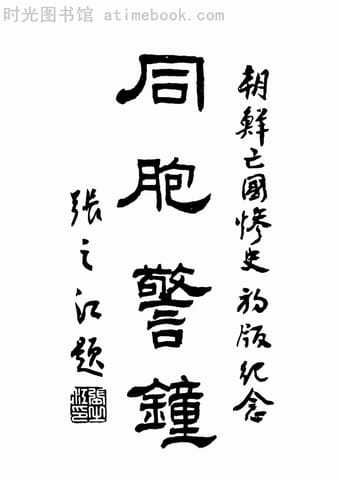 时光图书馆 atimebook.com
朝鮮亡國慘史初版紀念
同胞警鐘
張之江題
張之江印